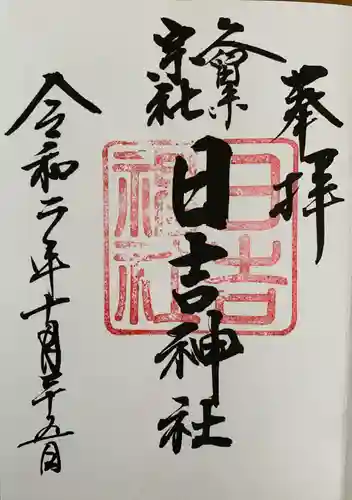 奉拝
日吉神社
令和二年十月二十五日
日吉
神社